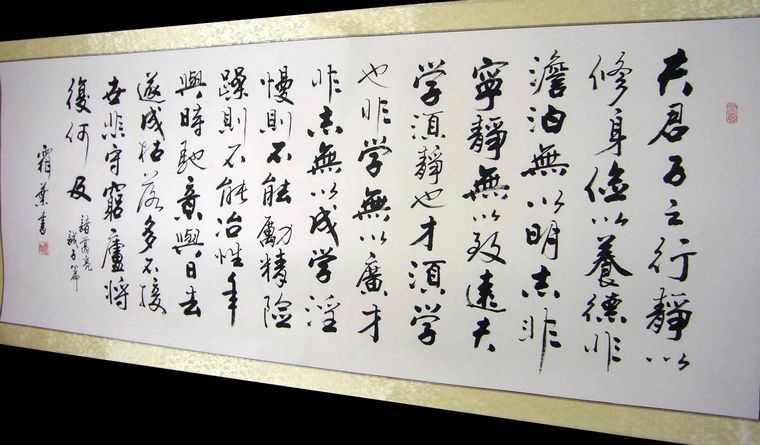 夫君子之行靜以
修身儉以養德非
澹泊無以明志非
寧靜無以致遠夫
学須靜也才須学
也非学無以廣才
非志無以成学淫
慢則不能勵精險
躁則不能冶性年
與時馳意與日去
遂成枯落多不接
世悲守窮廬將
復何及
諸葛亮
誡子篇
霜葉書